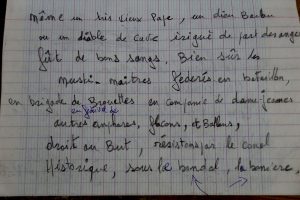 même un bis vieux Pape, un dieu Barbu
ou un diable de cave exigüe de part des anges
fût de bons songs. Bien sûr les
maîtres federés en bataillon,
en brigade de Bruxelles en compagnie de dame-jeannes
en fûtaille
autres amphores, flacons, et Ballons,
droit au But, résistons par le canal
Historique, sous le bandal, la bannière,